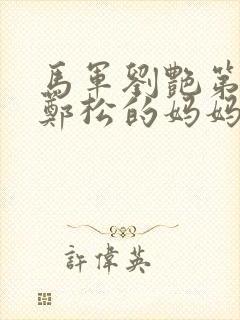 馬軍劉艷第
鄭松的妈妈
許偉英